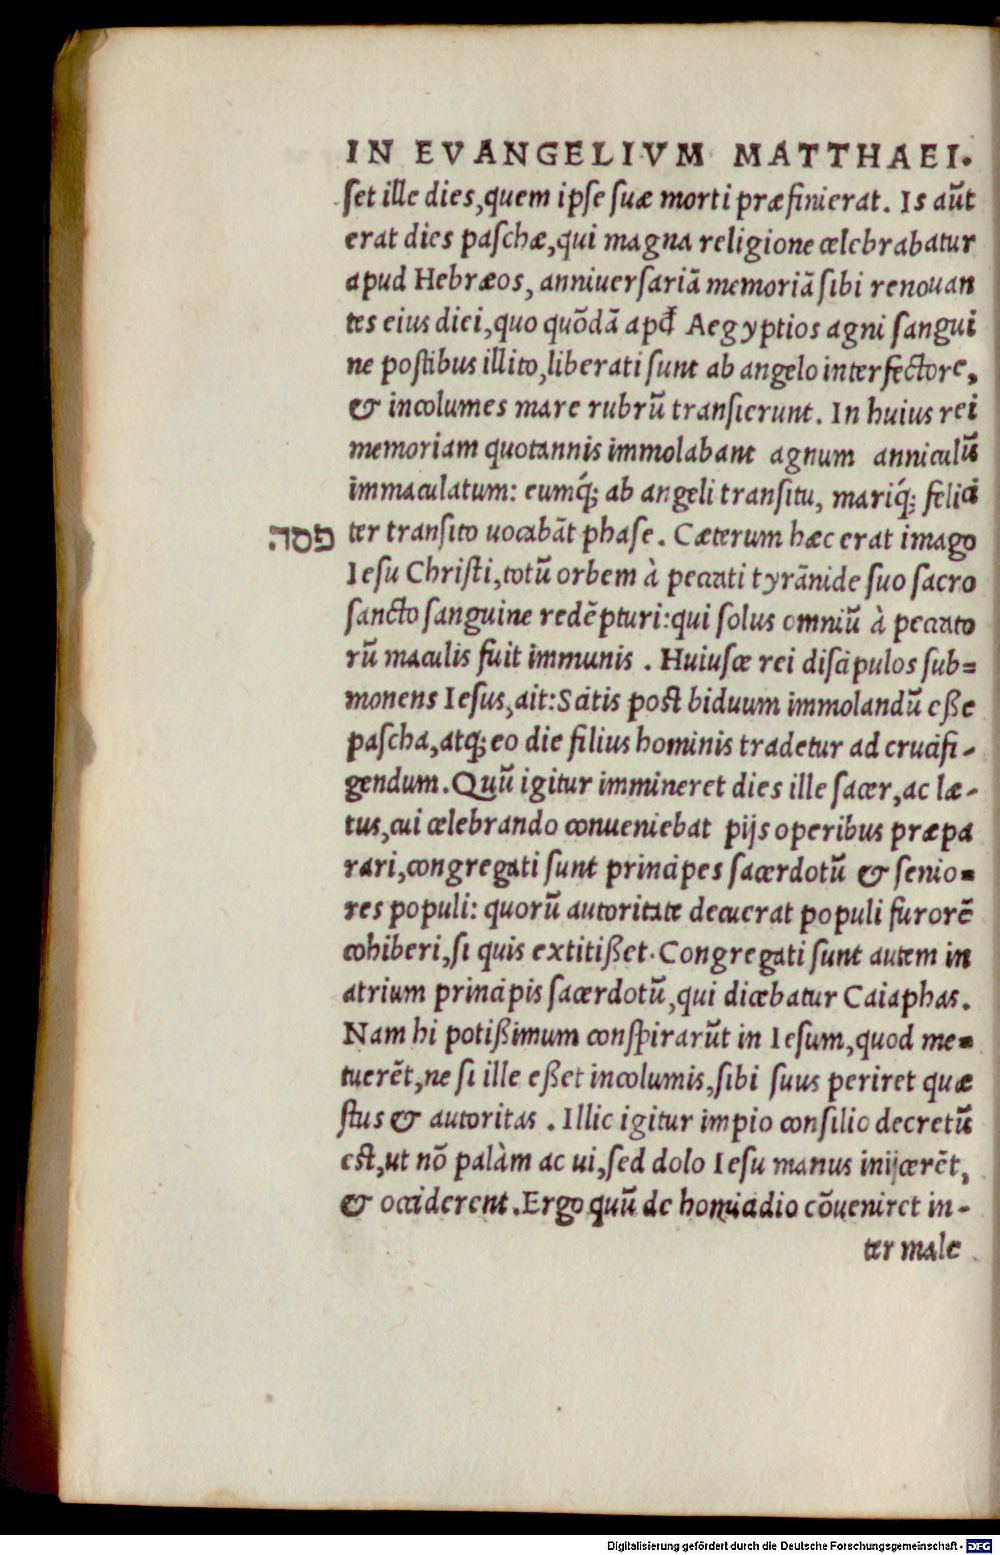 IN EVANGELIVM MATTHAEI.
ſet ille dies, quem ipſe ſuæ morti præfinierat. Is aũt
erat dies paſchæ, qui magna religione celebrabatur
apud Hebræos, anniuerſariã memoriã ſibi renouan
tes eius diei, quo quõdã apđ Aegyptios agni ſangui
ne poſtibus illito, liberati ſunt ab angelo interfectore,
& incolumes mare rubrũ tranſierunt. In huius rei
memoriam quotannis immolabant agnum anniculũ
immaculatum: eumq́; ab angeli tranſitu, mariq́; felici
פסה ter tranſito uocabãt phaſe. Cæterum hæc erat imago
Ieſu Chriſti, totũ orbem à peccati tyrãnide ſuo ſacro
ſancto ſanguine redẽpturi: qui ſolus omniũ à peccato
rũ maculis fuit immunis. Huiuſce rei diſcipulos ſub=
monens Ieſus, ait: Scitis poſt biduum immolandũ eße
paſcha, atq; eo die filius hominis tradetur ad crucifi-
gendum. Quũ igitur immineret dies ille ſacer, ac læ-
tus, cui celebrando conueniebat pijs operibus præpa
rari, congregati ſunt principes ſacerdotũ & ſenio=
res populi: quorũ autoritate decuerat populi furorẽ
cohiberi, ſi quis extitißet. Congregati ſunt autem in
atrium principis ſacerdotũ, qui dicebatur Caiaphas.
Nam hi potißimum conſpirarũt in Ieſum, quod me=
tuerẽt, ne ſi ille eßet incolumis, ſibi ſuus periret quæ
ſtus & autoritas. Illic igitur impio conſilio decretũ
eſt, ut nõ palàm ac ui, ſed dolo Ieſu manus inijcerẽt,
& occiderent. Ergo quũ de homicidio cõueniret in-
ter male
Digitalisierung gefördert durch die Deutsche Forschungsgemeinschaft - DFG